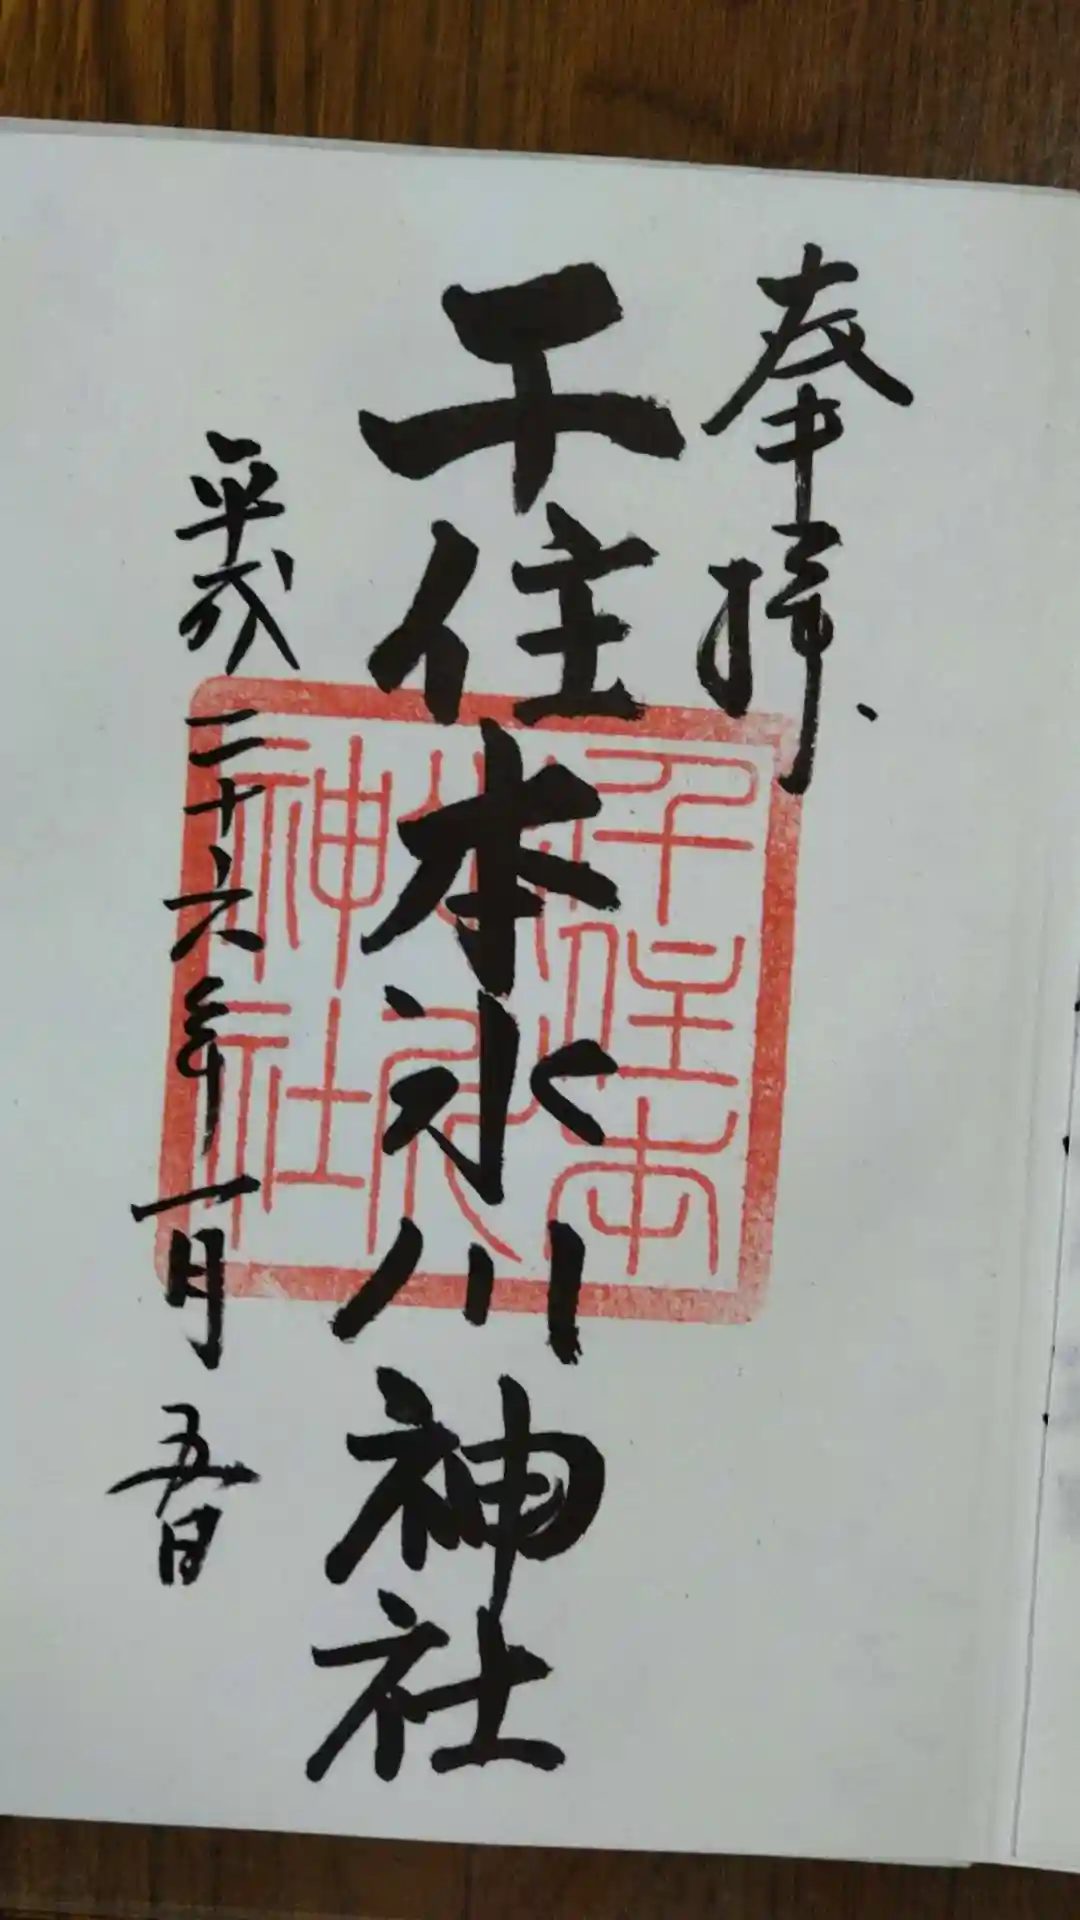 奉拝
千住本氷川神社
平成二十六年一月五日
千住本
氷川
神社